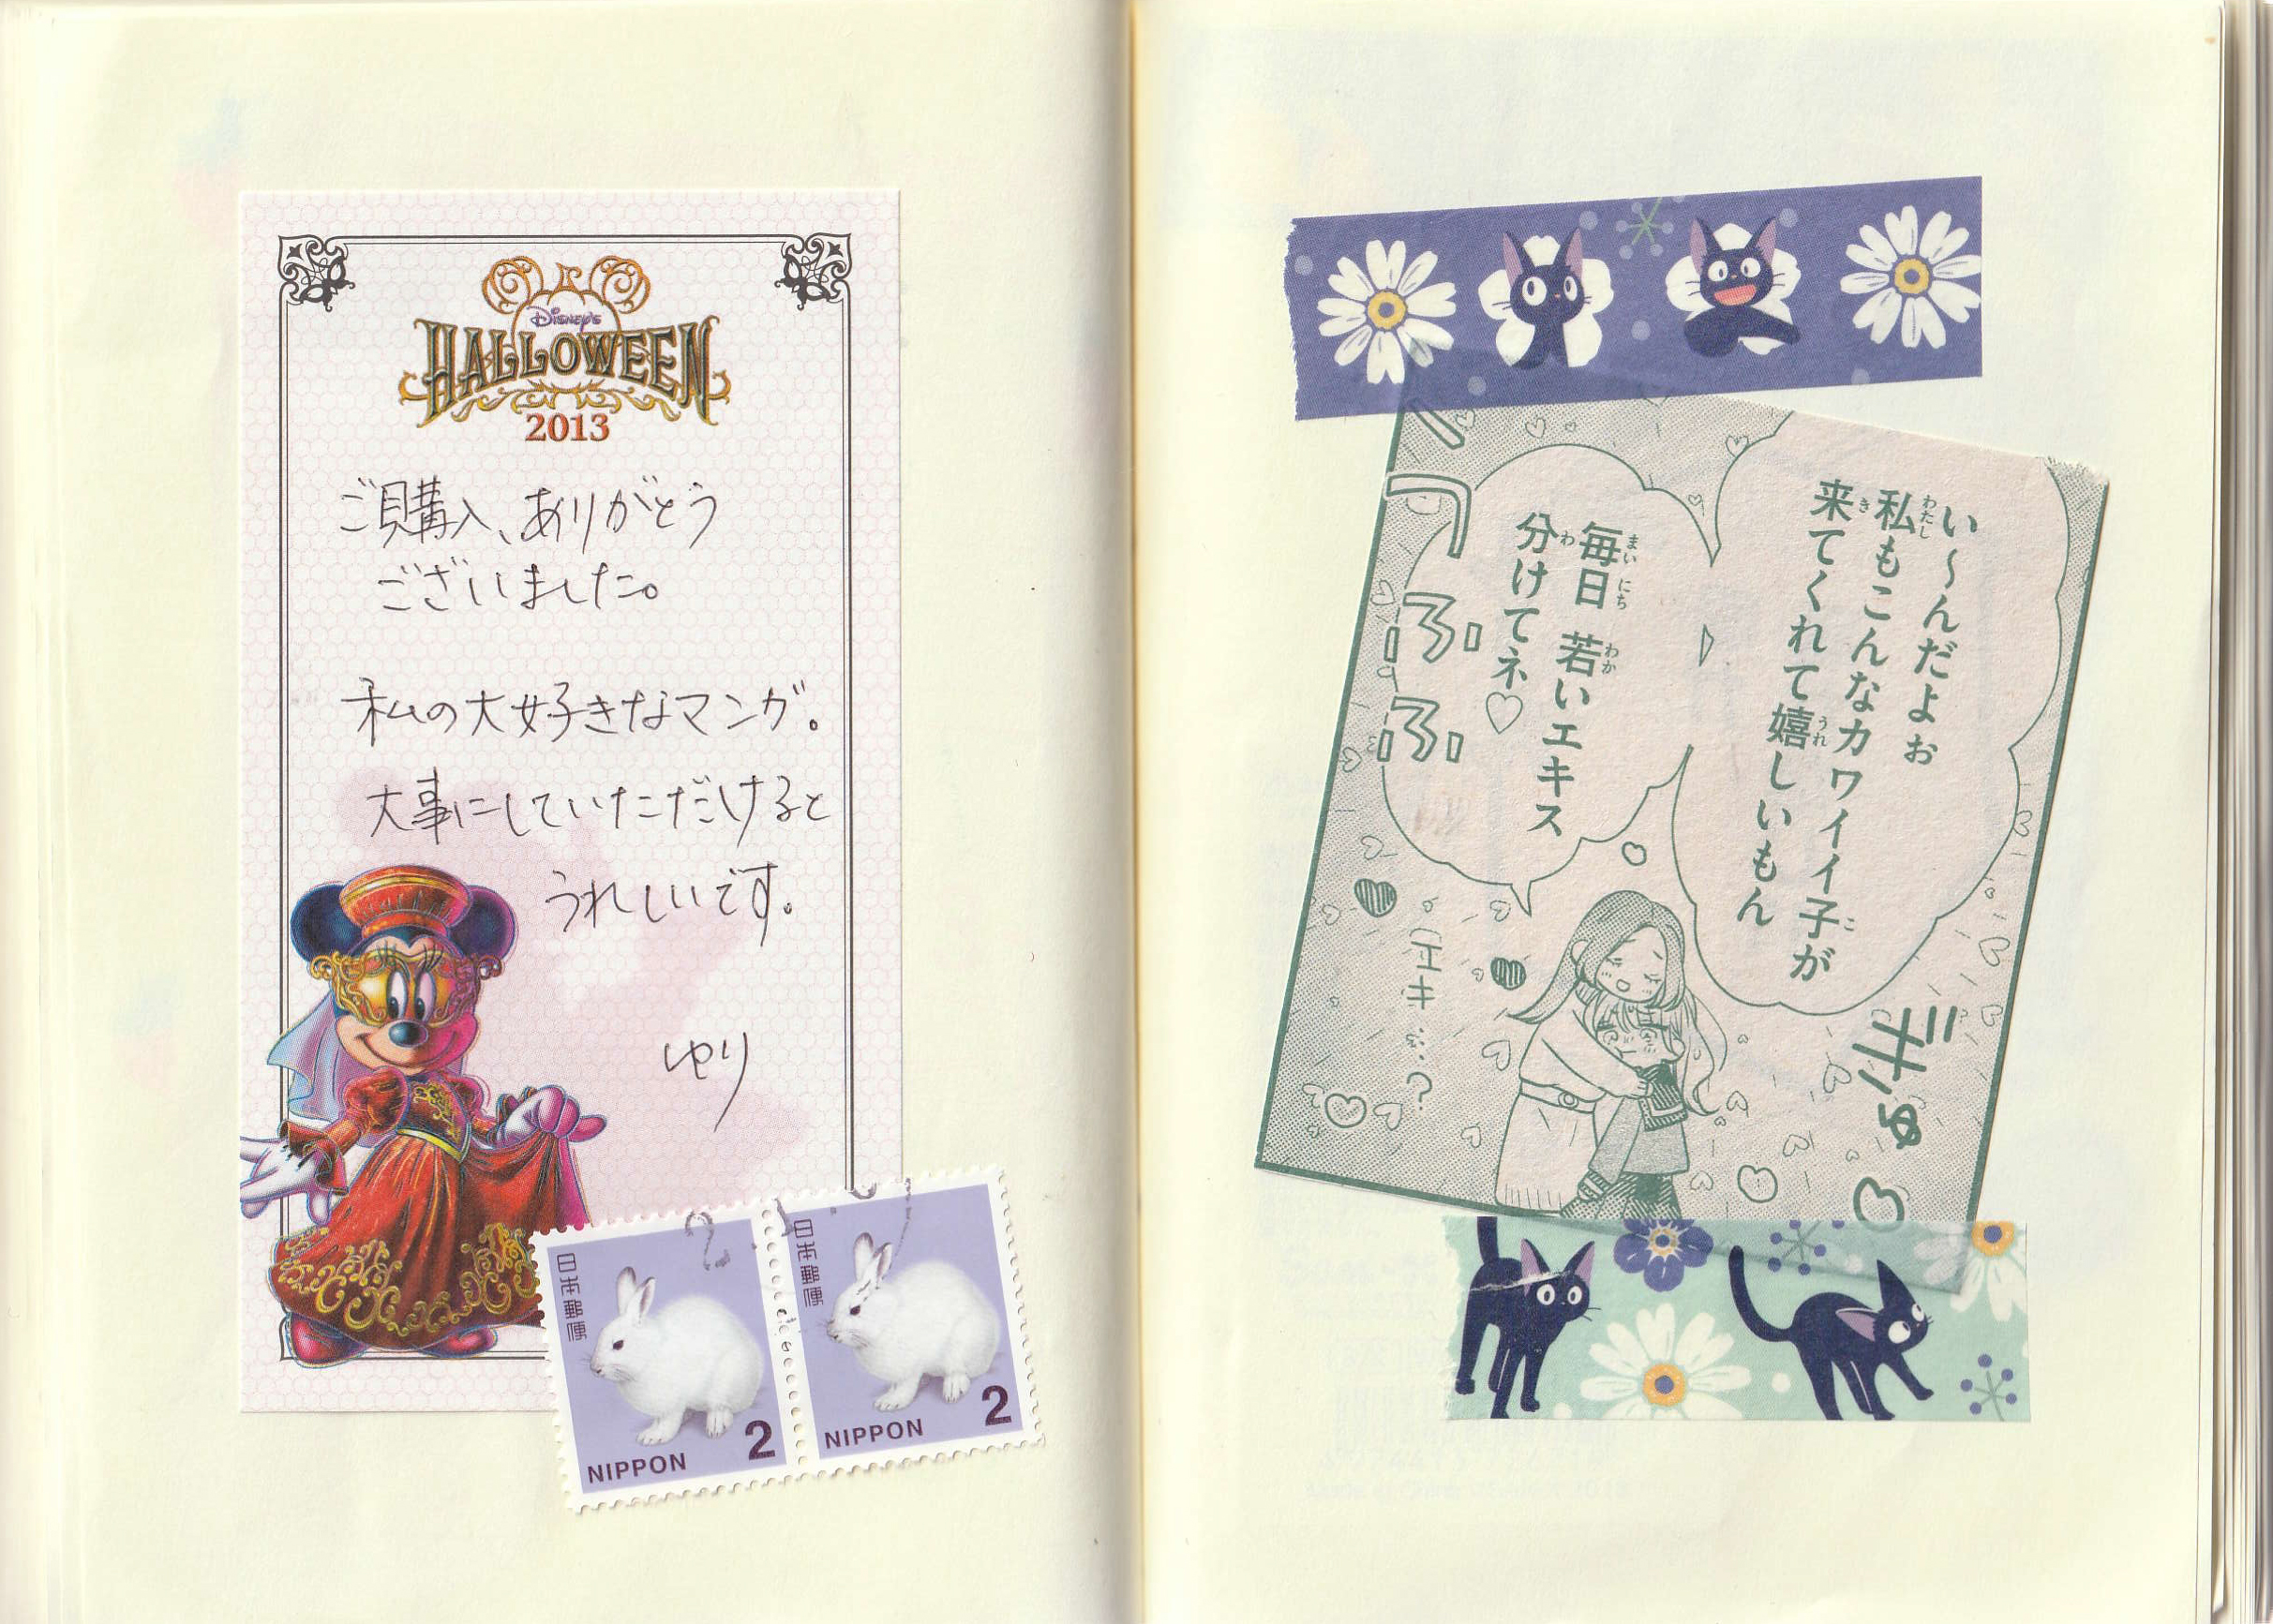 Disney's
HALLOWEEN
2013
ご購入、ありがとう
ございました。
私の大好きなマンガ。
大事にしていただけると
うれしいです。
ゆり
日本郵便
NIPPON
2
日本郵便
NIPPON
2
い〜んだよぉ
私もこんなカワイイ子が
来てくれて嬉しいもん
毎日 若いエキス
分けてネ♡
ふふ
エキ…?
ギュ